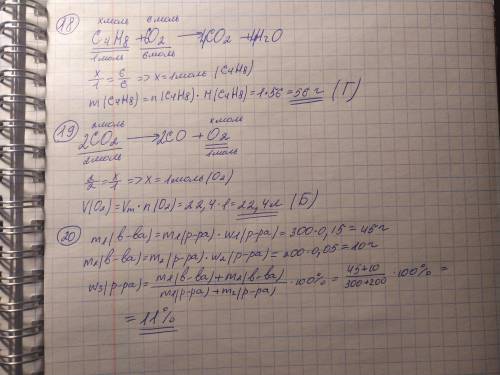 18 x моль 6 моль
C4H8 + 6O2 → 4CO2 + 4H2O
1 моль 6 моль
x/1 = 6/6 => x = 1 моль (C4H8)
m(C4H8) = n(C4H8) · M(C4H8) = 1·56 = 56 г (Г)
19 2 моль x моль
2CO2 → 2CO + O2
2 моль 1 моль
2/2 = x/1 => x = 1 моль (O2)
V(O2) = Vm · n(O2) = 22,4 · 1 = 22,4 л (Б)
20 m1(в-ва) = m1(р-ра) · w1(р-ра) = 300·0,15 = 45 г
m2(в-ва) = m2(р-ра) · w2(р-ра) = 200·0,05 = 10 г
w3(р-ра) = m1(в-ва) + m2(в-ва) / m1(р-ра) + m2(р-ра) · 100% = 45+10 / 300+200 · 100% =
= 11%